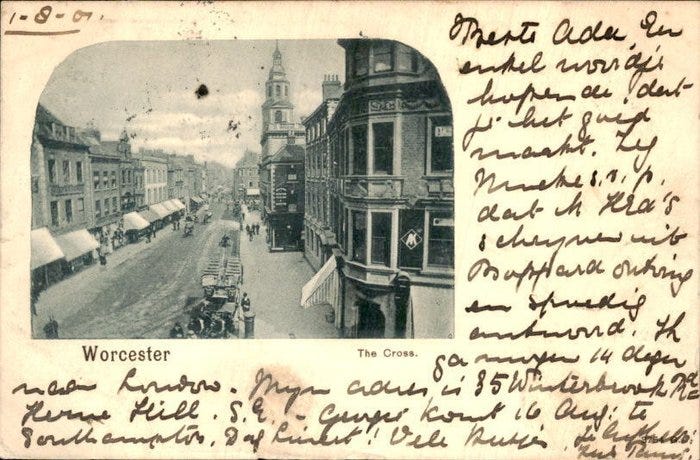 1-8-01
Beste Ada. Een
enkel woordje
hopende, dat
je het goed
maakt. Zeg
s.v.p.
dat ik
schrijven uit
Boppard ontving
en spoedig
antwoord. Ik
ga morgen 14 dagen
Worcester
The Cross.
naar London. Mijn adres is 35 Winterbrook Rd
Herne Hill. S.E. - George komt 16 Aug: te
Southampton. Dag! Vele